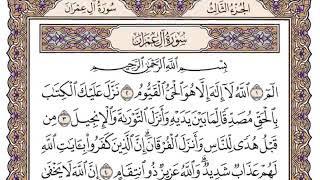 الجزء الثالث
سورة آل عمران
سُورَةُ آلِ عِمْرَانَ
بِسْمِ اللَّهِ الرَّحْمَٰنِ الرَّحِيمِ
الٓمٓ ١ اللَّهُ لَا إِلَٰهَ إِلَّا هُوَ الْحَيُّ الْقَيُّومُ ٢ نَزَّلَ عَلَيْكَ الْكِتَٰبَ
بِالْحَقِّ مُصَدِّقًا لِّمَا بَيْنَ يَدَيْهِ وَأَنزَلَ التَّوْرَىٰةَ وَالْإِنجِيلَ ٣ مِن
قَبْلُ هُدًى لِّلنَّاسِ وَأَنزَلَ الْفُرْقَانَ ۗ إِنَّ الَّذِينَ كَفَرُوا بِـَٔايَٰتِ اللَّهِ
لَهُمْ عَذَابٌ شَدِيدٌ ۗ وَاللَّهُ عَزِيزٌ ذُو انتِقَامٍ ٤ إِنَّ اللَّهَ لَا يَخْفَىٰ